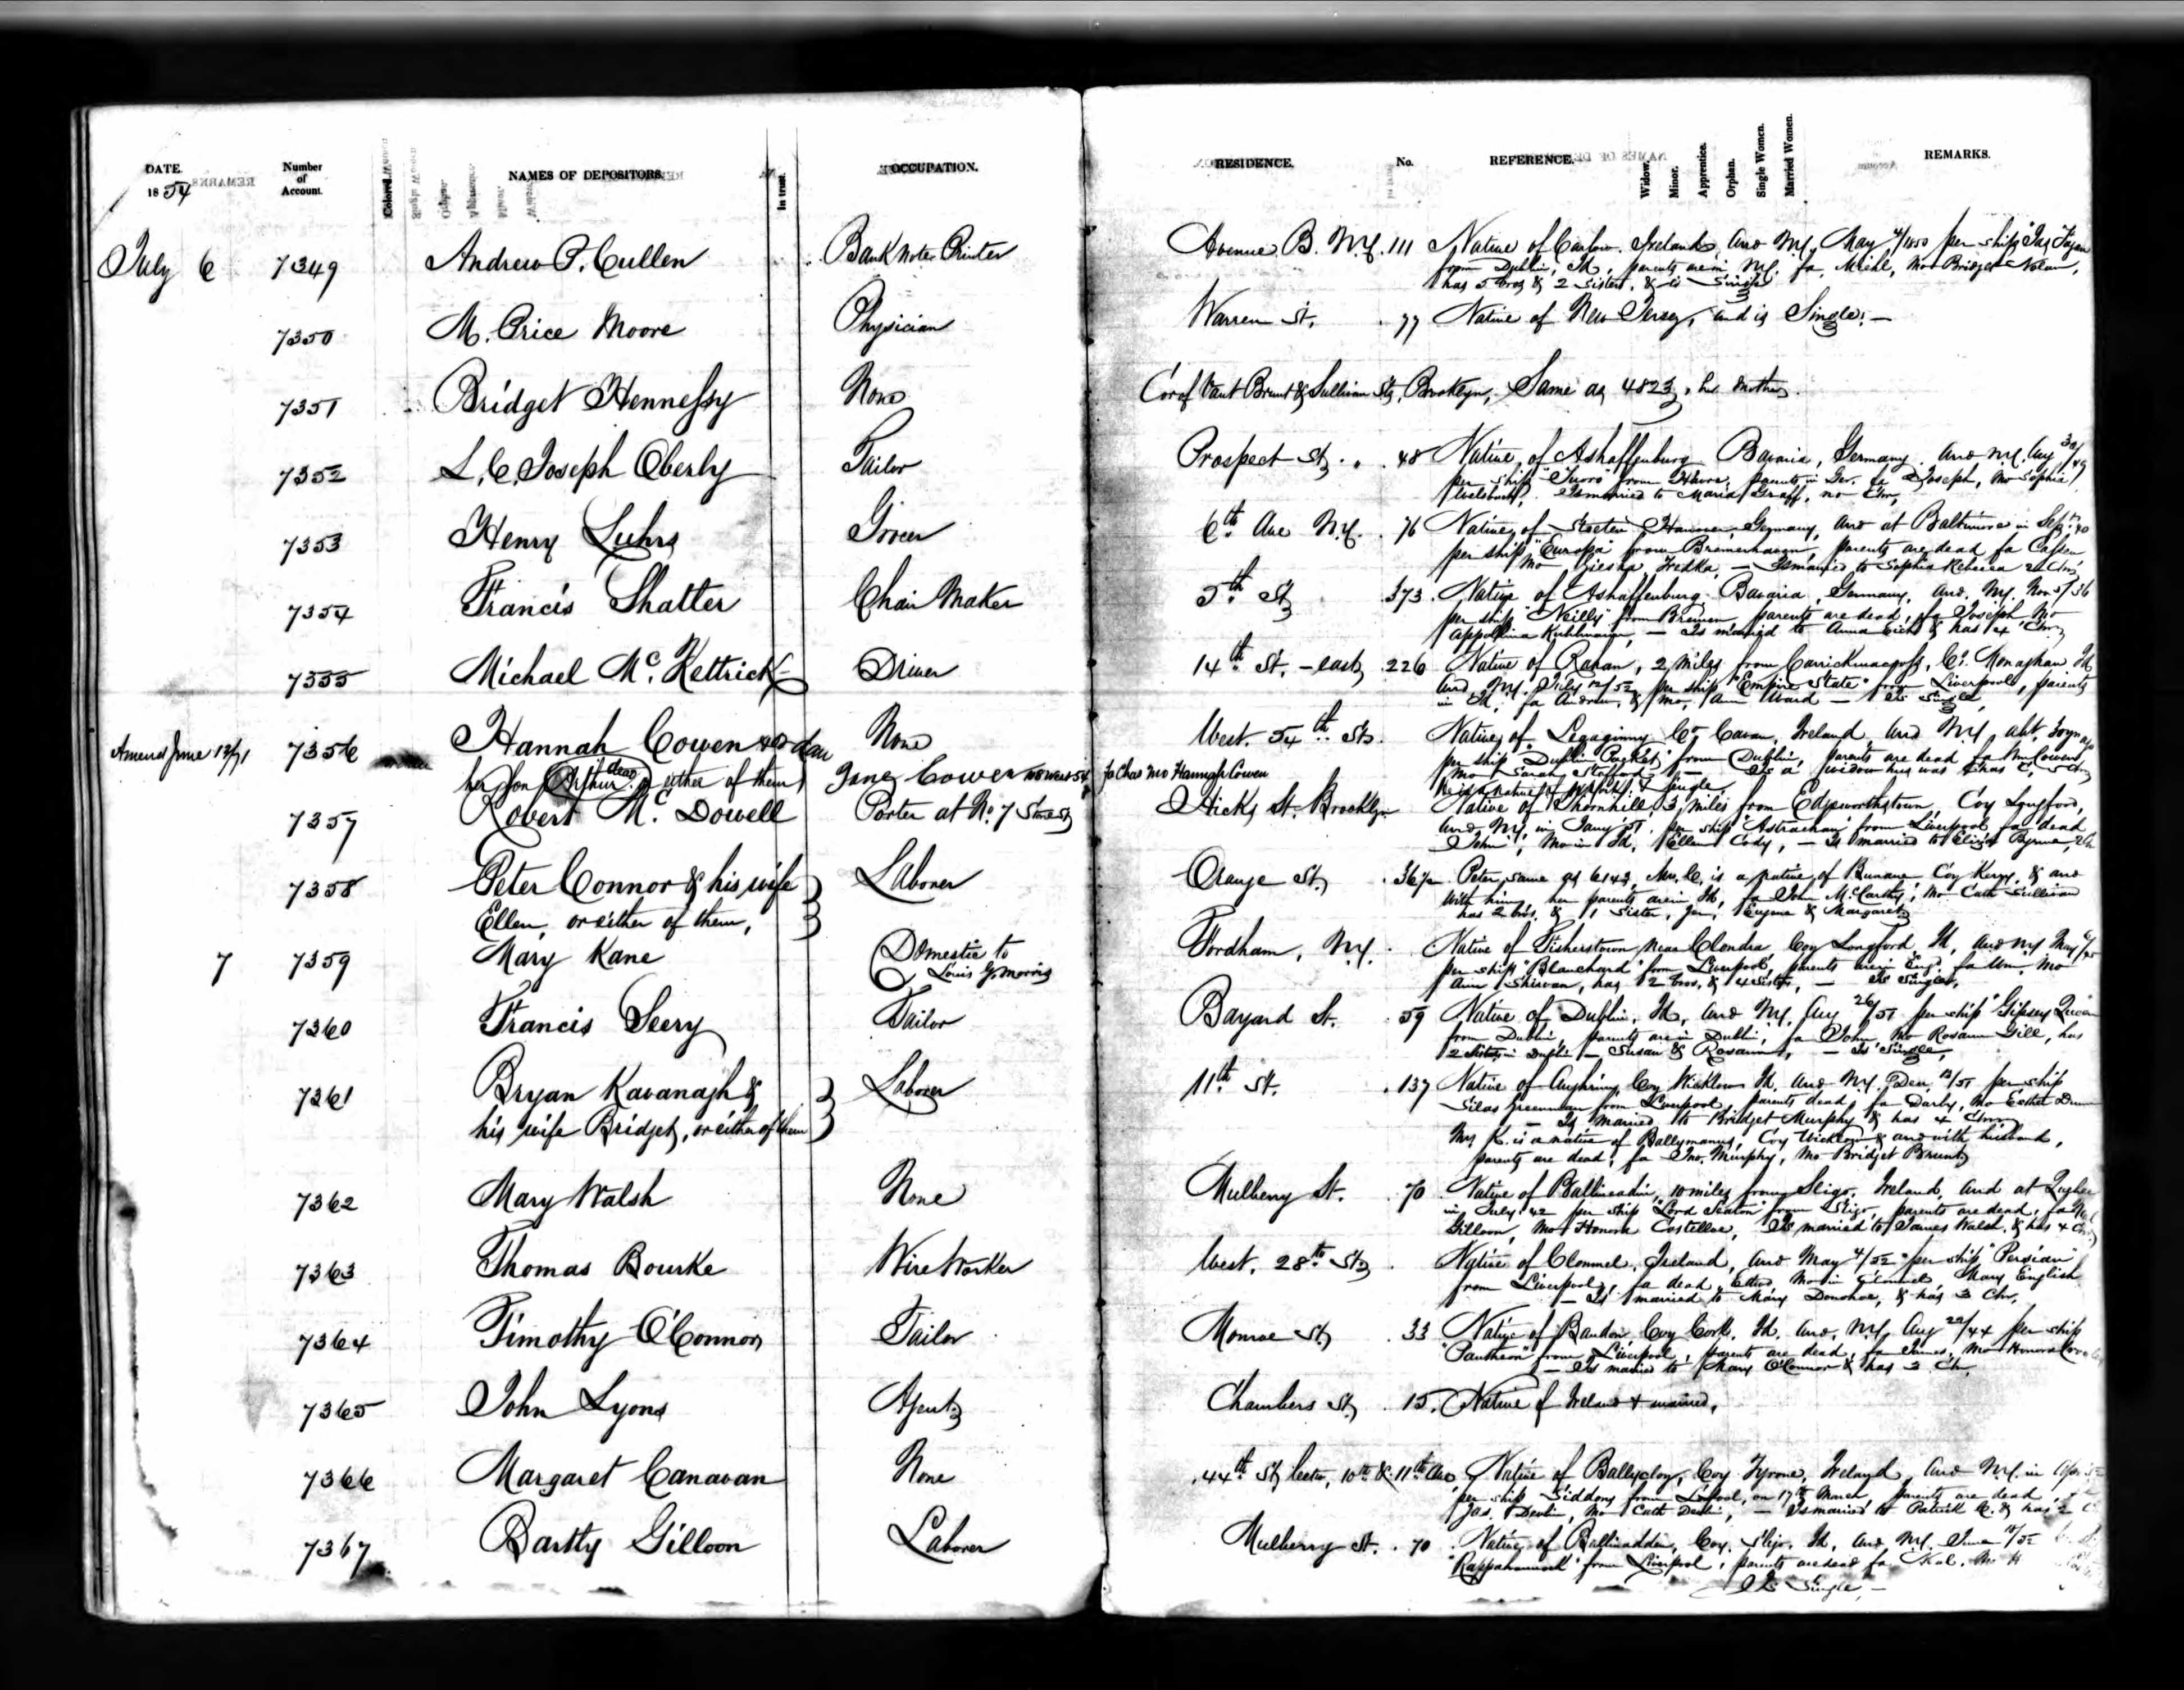 DATE.
1854
Number
of
Account.
Colored.
NAMES OF DEPOSITORS.
In trust.
OCCUPATION.
RESIDENCE.
No.
REFERENCE.
Widow.
Minor.
Apprentice.
Orphan.
Single Women.
Married Women.
REMARKS.
July 6 7349 Andrew P. Cullen Bank Note Printer Avenue B. N.Y. 111 Native of Carlow. Ireland, and N.Y. May 4/1850 per ship Jas Fagan
from Dublin, Id, parents are in N.Y. fa Michl, Mo Bridget Nolan,
has 5 bros & 2 Sisters, & is Single
7350 M. Price Moore Physician Warren St. 77 Native of New Jersey, and is Single. —
7351 Bridget Hennessy None Cor of Vant Brunt & Sullivan Sts, Brooklyn, Same as 4823, her mother.
7352 L. C. Joseph Oberly Tailor Prospect St. 48 Native of Ashaffenburg Bavaria, Germany. and N.Y. Aug 30/49
per ship from Havre, parents in Ger. fa Joseph, Mo Sophia
Is married to Maria Graff, no Chn,
7353 Henry Luhrs Grocer 6th Ave N.Y. 76 Native of Hanover, Germany, and at Baltimore in Sep. 40
per ship "Europa" from Bremerhaven, parents are dead fa
Mo Giesha — Is married to Sophia Rebecca 2 Chn
7354 Francis Shatter Chair Maker 5th St 373 Native of Ashaffenburg Bavaria, Germany, and. N.Y. Nov 5/36
per ship from Bremen, parents are dead, fa Joseph Mo
Appollina — Is married to Anna & has 4 Chn
7355 Michael Mc. Kettrick Driver 14th St. – east 226 Native of Rahan, 2 miles from Carrickmacross, Co. Monaghan Id
and N.Y. July 12/52 per ship "Empire State" from Liverpool, parents
in Id, fa Andrew, & Mo, Ann Ward — Is Single,
Amend June 13/71 7356 Hannah Cowen & dau None West. 54th St. Native of Legaginny Co. Cavan, Ireland and N.Y. abt.
per ship "Dublin Packet" from Dublin, parents are dead fa Wm Cowen,
Mo Sarah — Is a widow
her Son Arthur dead or either of them Jane Cowen West 54 fa Chas Mo Hannah Cowen
He is a native of & single.
7357 Robert Mc. Dowell Porter at No. 7 Stone St Hicks St. Brooklyn Native of Thornhill 3 miles from Edgeworthstown, Coy Longford,
and N.Y. in Jany 51 per ship "Astrachan" from Liverpool fa dead
John, Mo in Id, Ellen Cody, — Is married to Eliza Byrne,
7358 Peter Connor & his wife Laborer Orange St, 36½ Peter, same as 6143, Mrs. C. is a native of Coy Kerry, & and
with him, her parents are in Id, fa John McCarthy, Mo Cath Sullivan
Ellen, or either of them, has 2 bros. & 1 Sister, Jer, Eugene & Margaret
7 7359 Mary Kane Domestic to Fordham, N.Y. Native of Fisherstown near Clondra Coy Longford Id, and N.Y. May
Louis G. Morris per ship "Blanchard" from Liverpool, parents are in Eng. fa Wm. Mo
Ann has 2 bros. & 4 Sisters, — Is Single,
7360 Francis Seery Tailor Bayard St. 59 Native of Dublin, Id, and N.Y. Aug 26/51 per ship "Gipsey Queen
from Dublin, parents are in Dublin, fa John Mo Rosanna Gill, has
2 Sisters in Dublin — Susan & Rosanna, — Is Single,
7361 Bryan Kavanagh & Laborer 11th St. 137 Native of Aughrim, Coy Wicklow Id. and N.Y. Dec, 12/51 per ship
Silas Greenman from Liverpool, parents dead, fa Darby, Mo Esther
his wife Bridget, or either of them — Is Married to Bridget Murphy & has 4 Chn
Mrs K. is a native of Ballymanus, Coy Wicklow & and with husband,
parents are dead, fa Jno. Murphy, Mo Bridget
7362 Mary Walsh None Mulberry St. 70 Native of 10 miles from Sligo, Ireland, and at Quebec
in July 42 per ship Lord Seaton from Sligo, parents are dead, fa
Gilloon, Mo Honora Costelloe, Is married to James Walsh, & has 4 Chn
7363 Thomas Bourke Wire Worker West. 28th St Native of Clonmel, Ireland, and May 4/52 per ship "Persian"
from Liverpool, fa dead, Mo in Clonmel, Mary English
— Is married to Mary Donohoe, & has 3 Chn,
7364 Timothy O'Connor Tailor Monroe St, 33 Native of Bandon Coy Cork, Id. and. N.Y. Aug 22/44 per ship
"Pantheon" from Liverpool, parents are dead, fa Mo Honora
— Is married to Mary O'Connor & has 3 Ch.
7365 John Lyons Agent Chambers St, 15. Native of Ireland & married,
7366 Margaret Canavan None 44th St, betw, 10th & 11th Ave Native of Ballyclog, Coy Tyrone, Ireland, and N.Y. in
per ship Siddons from L'pool, on 17th March, parents are dead,
Jas. Devlin, Mo Cath Devlin, — Is married to Patrick C. & has 2
7367 Bartty Gilloon Laborer Mulberry St. 70 Native of Coy. Sligo. Id, and N.Y. June
"Rappahannock" from Liverpool, parents are dead fa
Is Single, —